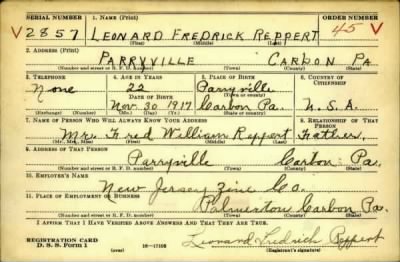 SERIAL NUMBER 1. NAME (Print) ORDER NUMBER
V 2857 LEONARD FREDRICK REPPERT 45 V
(First) (Middle) (Last)
2. ADDRESS (Print)
PARRYVILLE CARBON PA
(Number and street or R. F. D. number) (Town) (County) (State)
3. TELEPHONE 4. AGE IN YEARS 5. PLACE OF BIRTH 6. COUNTRY OF CITIZENSHIP
None 22 Parryville
DATE OF BIRTH (Town or county)
Nov. 30 1917 Carbon Pa. U.S.A.
(Exchange) (Number) (Mo.) (Day) (Yr.) (State or country)
7. NAME OF PERSON WHO WILL ALWAYS KNOW YOUR ADDRESS 8. RELATIONSHIP OF THAT PERSON
Mr. Fred William Reppert Father.
(Mr., Mrs., Miss) (First) (Middle) (Last)
9. ADDRESS OF THAT PERSON
Parryville Carbon Pa.
(Number and street or R. F. D. number) (Town) (County) (State)
10. EMPLOYER'S NAME
New Jersey Zinc Co.
11. PLACE OF EMPLOYMENT OR BUSINESS
Palmerton Carbon Pa.
(Number and street or R. F. D. number) (Town) (County) (State)
I AFFIRM THAT I HAVE VERIFIED ABOVE ANSWERS AND THAT THEY ARE TRUE.
REGISTRATION CARD Leonard Fredrich Reppert
D. S. S. Form 1 (over) 16—17105 (Registrant's signature)